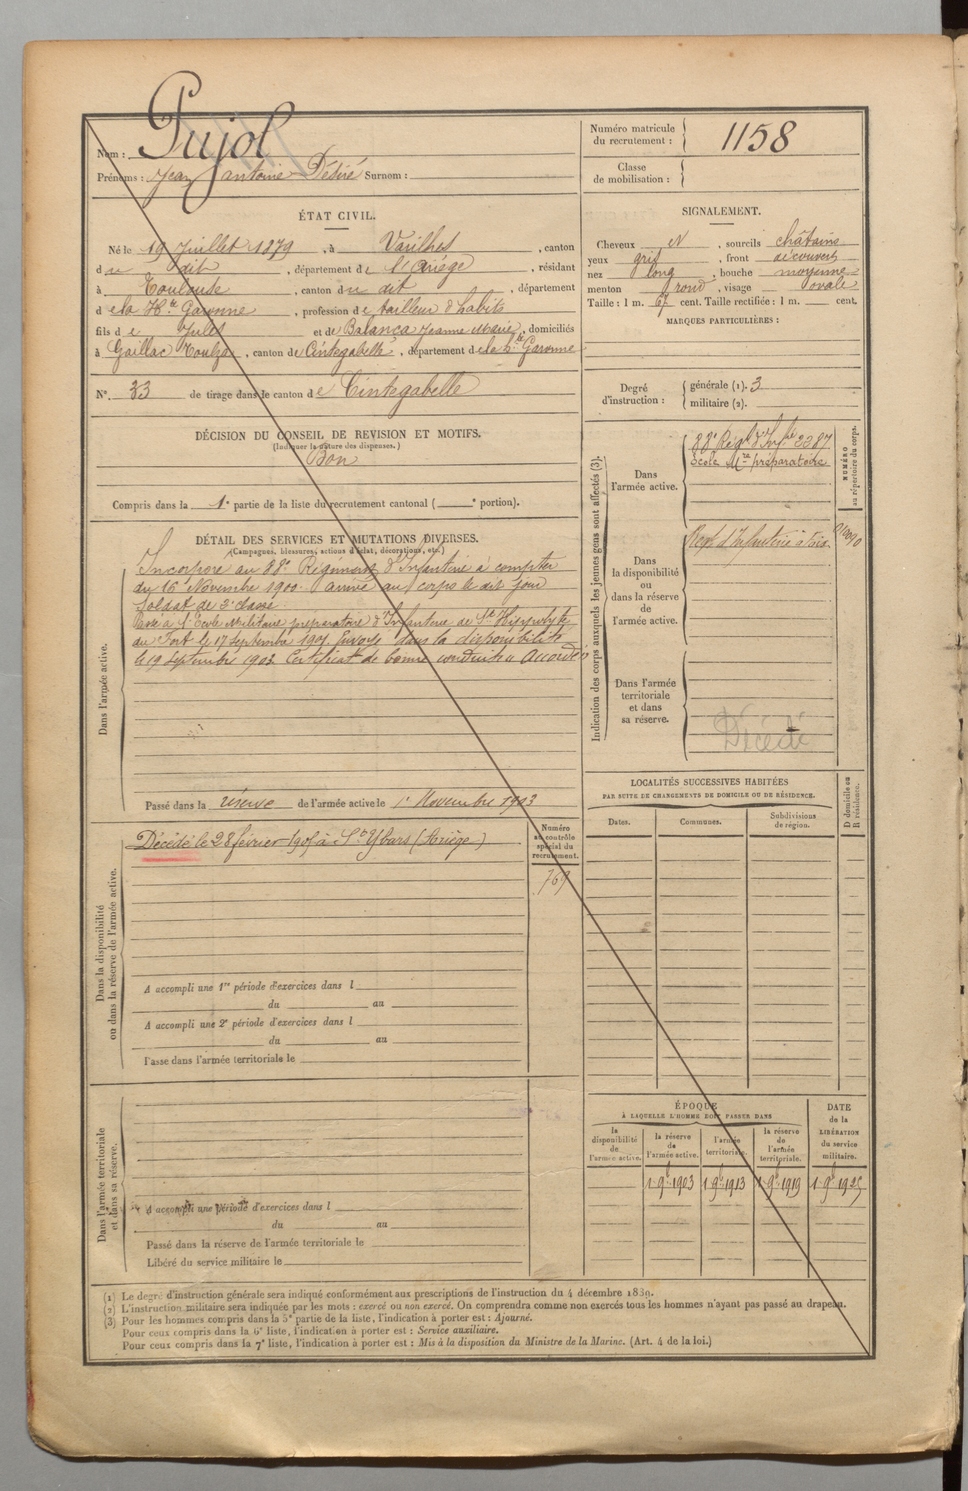 Nom : Pujol
Prénoms : Jean Antoine Désiré Surnom :
Numéro matricule
du recrutement : 1158
Classe
de mobilisation :
ÉTAT CIVIL.
Né le 19 Juillet 1879, à Varilhes, canton
du dit, département de l'Ariège, résidant
à Toulouse, canton du dit, département
de la Hte Garonne, profession de tailleur d'habits
fils de Jules et de Balança Jeanne Marie, domiciliés
à Gaillac Toulza, canton de Cintegabelle, département de la Hte Garonne
N°. 33 de tirage dans le canton de Cintegabelle
SIGNALEMENT.
Cheveux et, sourcils châtains
yeux gris, front découvert
nez long, bouche moyenne
menton rond, visage ovale
Taille : 1 m. 67 cent. Taille rectifiée : 1 m. cent.
MARQUES PARTICULIÈRES :
Degré
d'instruction :
générale (1). 3
militaire (2).
DÉCISION DU CONSEIL DE REVISION ET MOTIFS.
(Indiquer la nature des dispenses.)
Bon
Compris dans la 1e partie de la liste du recrutement cantonal ( e portion).
DÉTAIL DES SERVICES ET MUTATIONS DIVERSES.
(Campagnes, blessures, actions d'éclat, décorations, etc.)
Dans l'armée active.
Incorporé au 88e Régiment d'Infanterie à compter
du 16 Novembre 1900. Arrivé au corps le dit jour
soldat de 2e classe.
Passé à l'École Militaire préparatoire d'Infanterie de St Hippolyte
du Fort le 17 Septembre 1901. Envoyé dans la disponibilité
le 19 Septembre 1903. Certificat de bonne conduite "Accordé"
Passé dans la réserve de l'armée active le 1r Novembre 1903
Indication des corps auxquels les jeunes gens sont affectés (3).
NUMÉRO
au répertoire du corps.
Dans
l'armée active.
88e Régt d'Inftie 3387
École Mre préparatoire
Dans
la disponibilité
ou dans la réserve
de
l'armée active.
Régt d'Infanterie à Foix
Dans l'armée
territoriale
et dans
sa réserve.
Décédé
Dans la disponibilité
ou dans la réserve de l'armée active.
Décédé le 28 février 1905 à St Ybars (Ariège)
Numéro
au contrôle
spécial du
recrutement.
769
A accompli une 1re période d'exercices dans l
du au
A accompli une 2e période d'exercices dans l
du au
Passé dans l'armée territoriale le
LOCALITÉS SUCCESSIVES HABITÉES
PAR SUITE DE CHANGEMENTS DE DOMICILE OU DE RÉSIDENCE.
Dates.
Communes.
Subdivisions
de région.
D domicile ou
R résidence.
Dans l'armée territoriale
et dans sa réserve.
A accompli une période d'exercices dans l
du au
Passé dans la réserve de l'armée territoriale le
Libéré du service militaire le
ÉPOQUE
À LAQUELLE L'HOMME DOIT PASSER DANS
DATE
de la
LIBÉRATION
du service
militaire.
la
disponibilité
de
l'armée active.
la réserve
de
l'armée active.
l'armée
territoriale.
la réserve
de
l'armée
territoriale.
1 9b 1903
1 9b 1913
1 9b 1919
1 9b 1925
(1) Le degré d'instruction générale sera indiqué conformément aux prescriptions de l'instruction du 4 décembre 1889.
(2) L'instruction militaire sera indiquée par les mots : exercé ou non exercé. On comprendra comme non exercés tous les hommes n'ayant pas passé au drapeau.
(3) Pour les hommes compris dans la 5e partie de la liste, l'indication à porter est : Ajourné.
Pour ceux compris dans la 6e liste, l'indication à porter est : Service auxiliaire.
Pour ceux compris dans la 7e liste, l'indication à porter est : Mis à la disposition du Ministre de la Marine. (Art. 4 de la loi.)